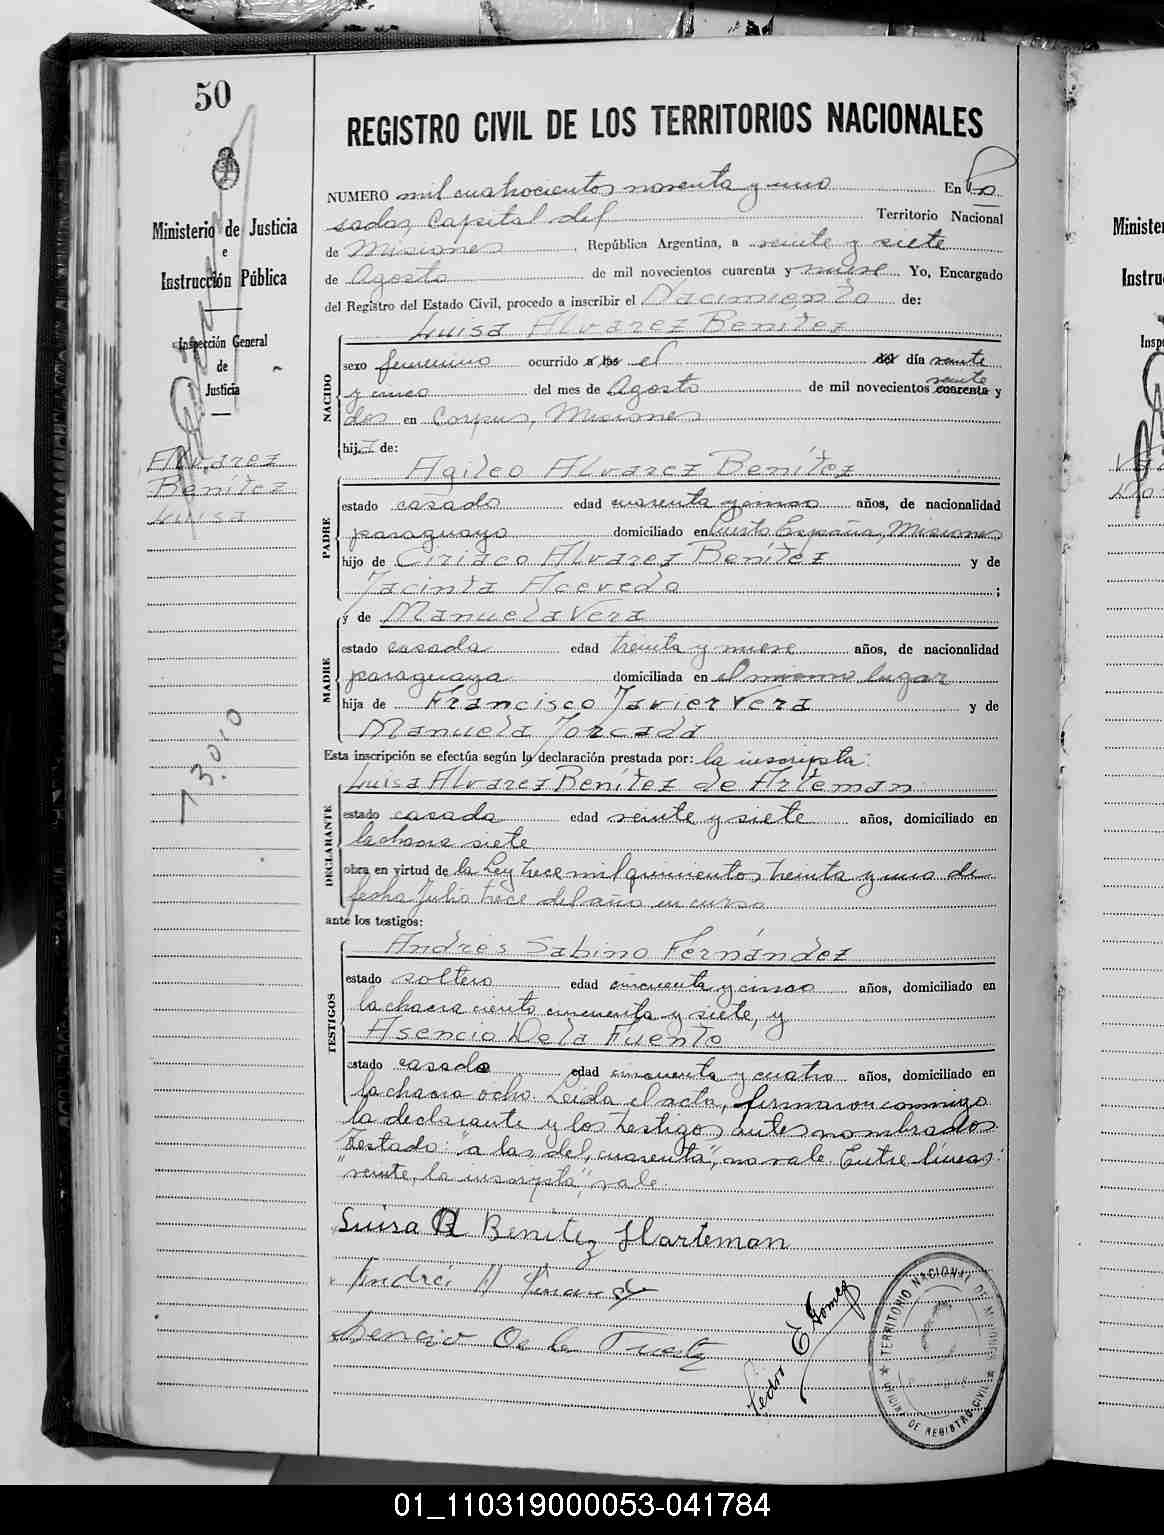 50
Ministerio de Justicia
e
Instrucción Pública
Inspección General
de
Justicia
Alvarez
Benítez
Luisa
73.010
REGISTRO CIVIL DE LOS TERRITORIOS NACIONALES
NUMERO mil cuatrocientos noventa y uno En Po
sadas, Capital del Territorio Nacional
de Misiones, República Argentina, a veinte y siete
de Agosto de mil novecientos cuarenta y nueve. Yo, Encargado
del Registro del Estado Civil, procedo a inscribir el Nacimiento de:
Luisa Alvarez Benítez
NACIDO
sexo femenino ocurrido a las el del día veinte
y cinco del mes de Agosto de mil novecientos cuarenta veinte y
dos en Corpus, Misiones
hija de:
Agileo Alvarez Benítez
PADRE
estado casado edad cuarenta y cinco años, de nacionalidad
paraguayo domiciliado en Puerto España, Misiones
hijo de Ciriaco Alvarez Benítez y de
Jacinta Acevedo ;
y de Manuela Vera
MADRE
estado casada edad treinta y nueve años, de nacionalidad
paraguaya domiciliada en el mismo lugar
hija de Francisco Javier Vera y de
Manuela Torcada
Esta inscripción se efectúa según la declaración prestada por: la inscripta:
Luisa Alvarez Benítez de Arteman
DECLARANTE
estado casada edad veinte y siete años, domiciliado en
la chacra siete
obra en virtud de la Ley trece mil quinientos treinta y uno de
fecha Julio trece del año en curso
ante los testigos:
Andrés Sabino Fernández
TESTIGOS
estado soltero edad cincuenta y cinco años, domiciliado en
la chacra ciento cincuenta y siete, y
Asencio De la Fuente
estado casado edad cincuenta y cuatro años, domiciliado en
la chacra ocho. Leída el acta, firmaron conmigo
la declarante y los testigos antes nombrados.
Testado: "a las, del, cuarenta", no vale. Entre líneas:
"veinte, la inscripta", vale.
Luisa A Benitez Harteman
Andrés
Asencio De la Fuente
Pedro E Gomez
TERRITORIO NACIONAL DE MISIONES
OFICINA DE REGISTRO CIVIL
Ministe
Instru
Insp
01_110319000053-041784